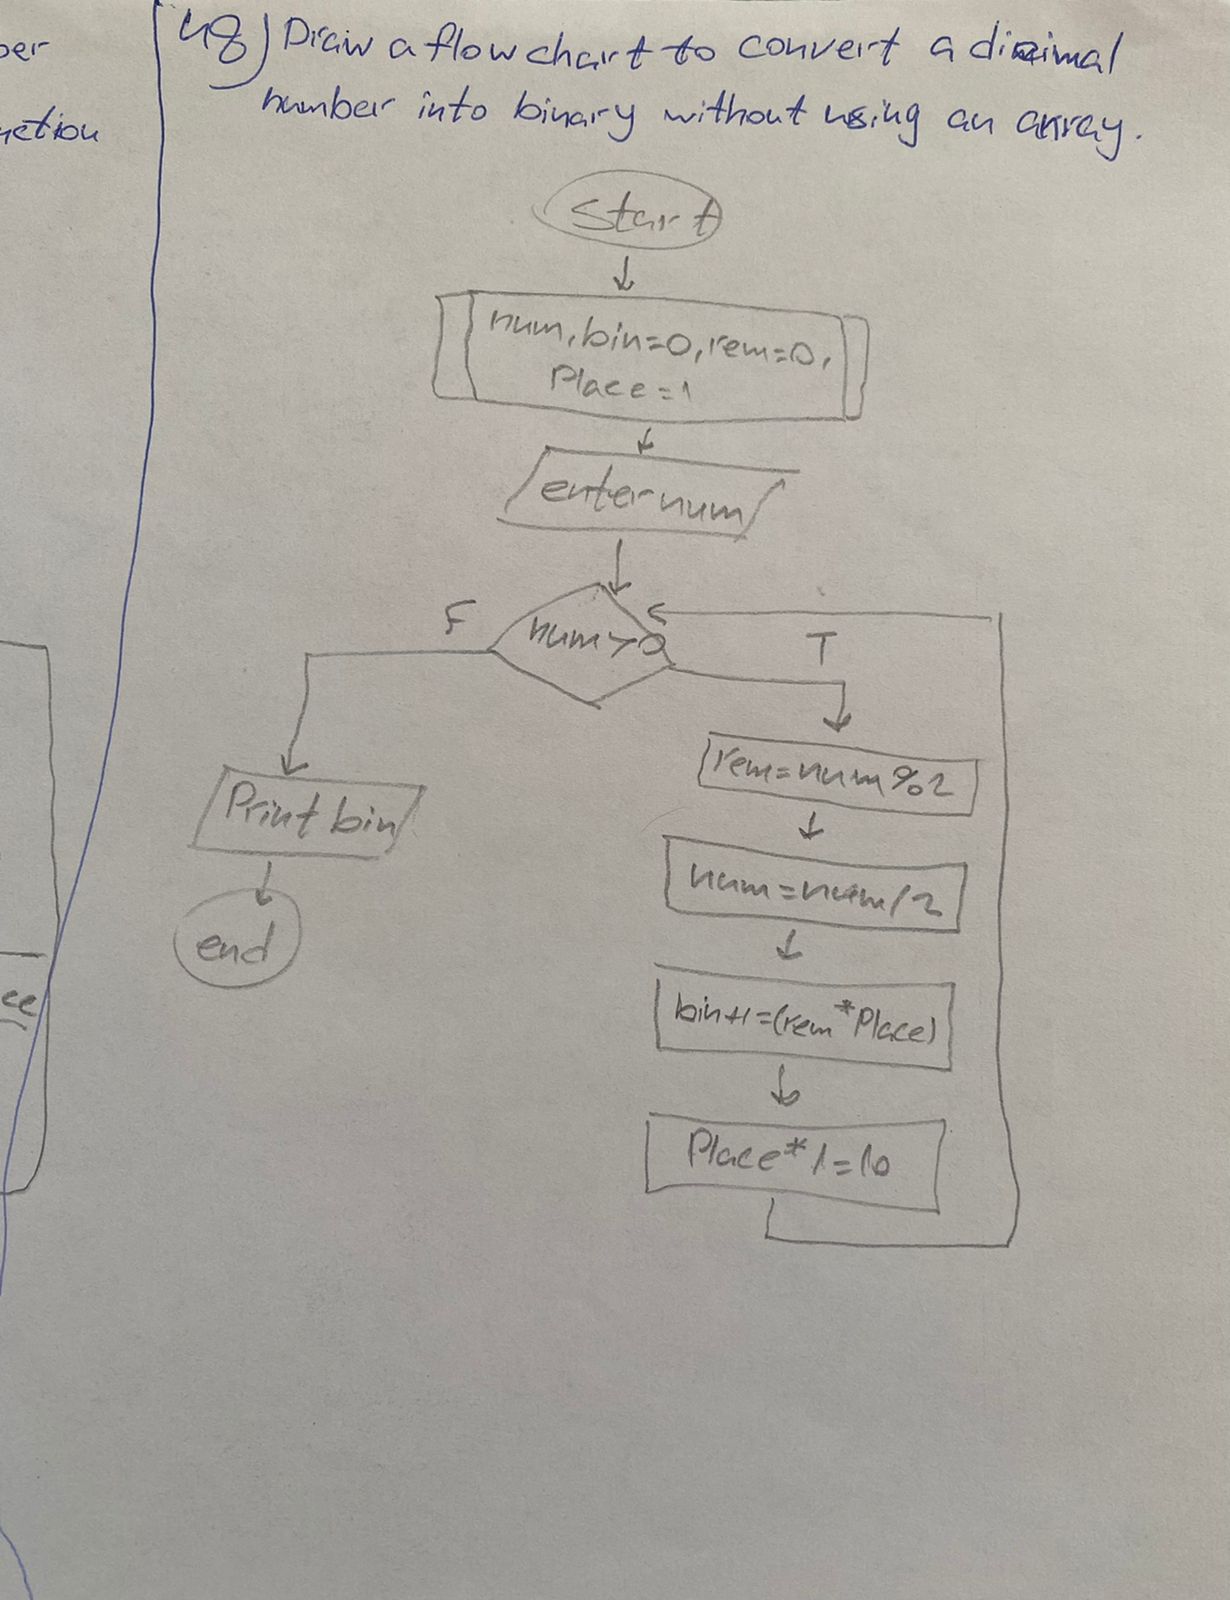 ber
nction
48) Draw a flowchart to convert a dicimal
number into binary without using an array.
Start
num, bin=0, rem=0,
Place=1
enter num
num>0
F
T
rem=num%2
Print bin
num=num/2
end
ce
bin+=(rem*Place)
Place*1=10